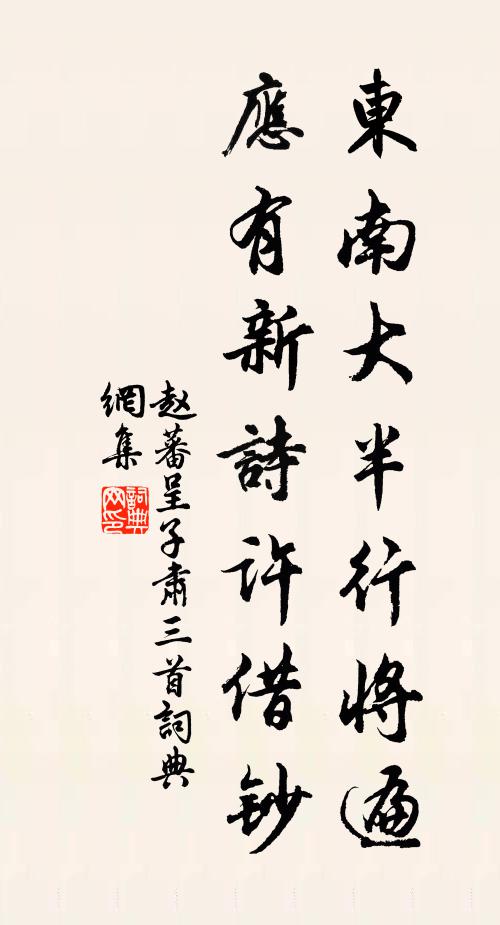 東南大半行將遍
應有新詩許借鈔
赵蕃呈子肅三首詞典
網集
詞典
网印